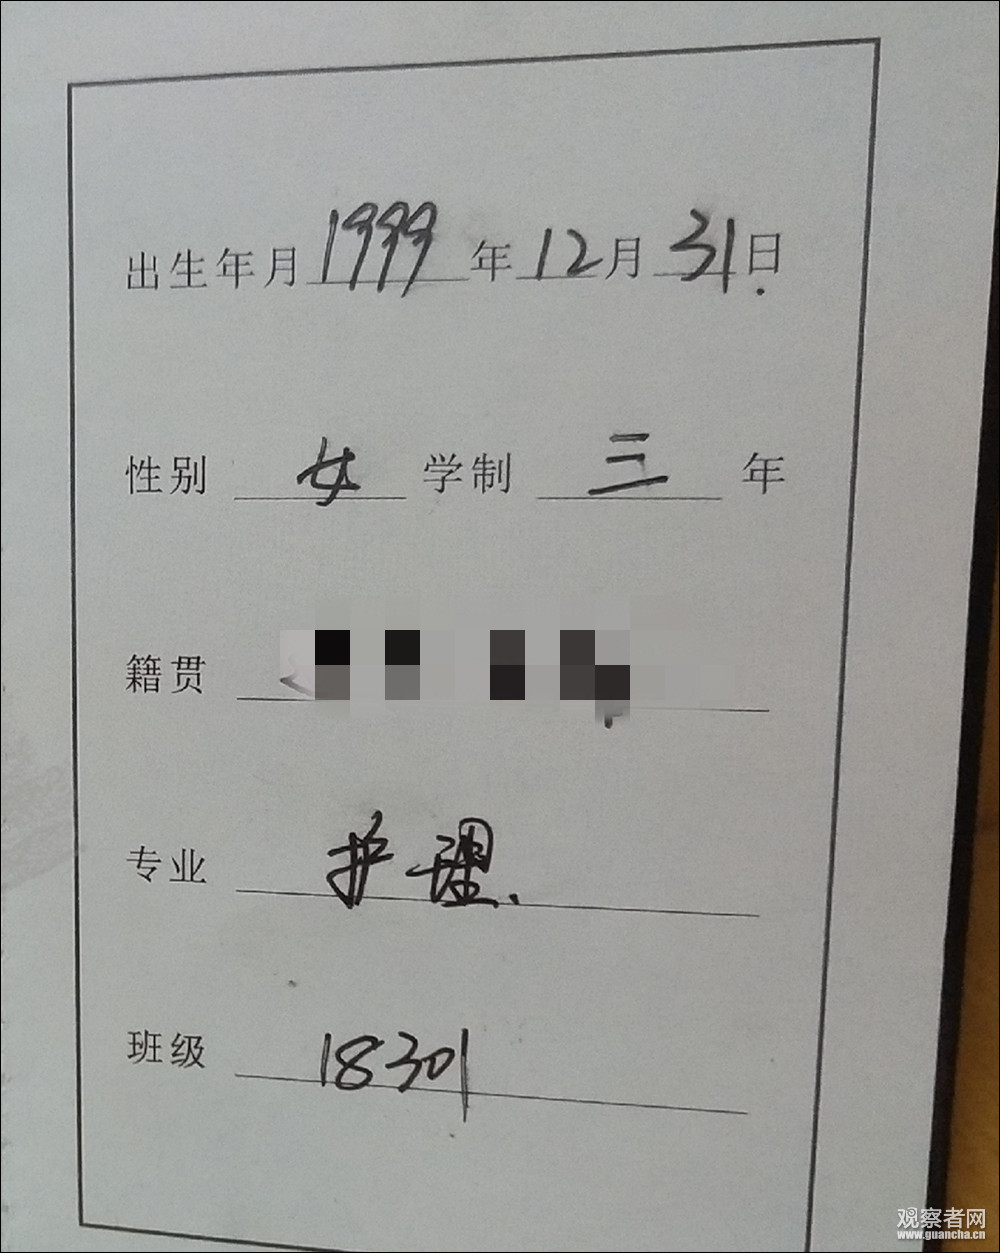 出生年月 1999 年 12 月 31 日.
性别 女 学制 三 年
籍贯
专业 护理.
班级 18301
观察者网
www.guancha.cn